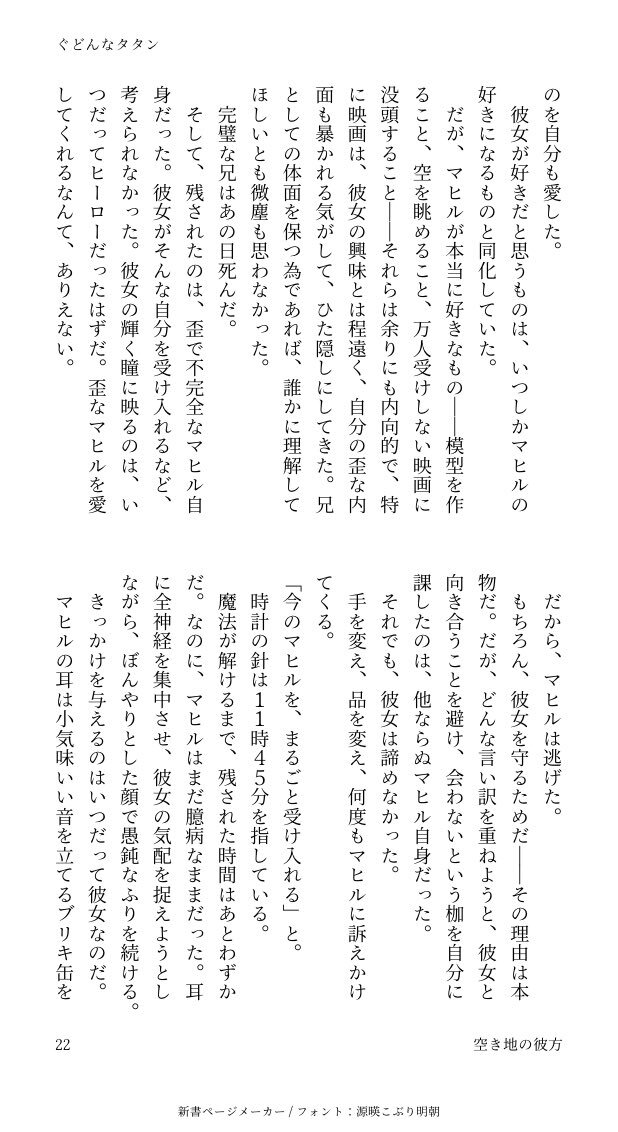 ぐどんなタタン
のを自分も愛した。
　彼女が好きだと思うものは、いつしかマヒルの
好きになるものと同化していた。
　だが、マヒルが本当に好きなもの――模型を作
ること、空を眺めること、万人受けしない映画に
没頭すること――それらは余りにも内向的で、特
に映画は、彼女の興味とは程遠く、自分の歪な内
面も暴かれる気がして、ひた隠しにしてきた。兄
としての体面を保つ為であれば、誰かに理解して
ほしいとも微塵も思わなかった。
　完璧な兄はあの日死んだ。
　そして、残されたのは、歪で不完全なマヒル自
身だった。彼女がそんな自分を受け入れるなど、
考えられなかった。彼女の輝く瞳に映るのは、い
つだってヒーローだったはずだ。歪なマヒルを愛
してくれるなんて、ありえない。
　だから、マヒルは逃げた。
　もちろん、彼女を守るためだ――その理由は本
物だ。だが、どんな言い訳を重ねようと、彼女と
向き合うことを避け、会わないという枷を自分に
課したのは、他ならぬマヒル自身だった。
　それでも、彼女は諦めなかった。
　手を変え、品を変え、何度もマヒルに訴えかけ
てくる。
「今のマヒルを、まるごと受け入れる」と。
　時計の針は１１時４５分を指している。
　魔法が解けるまで、残された時間はあとわずか
だ。なのに、マヒルはまだ臆病なままだった。耳
に全神経を集中させ、彼女の気配を捉えようとし
ながら、ぼんやりとした顔で愚鈍なふりを続ける。
　きっかけを与えるのはいつだって彼女なのだ。
　マヒルの耳は小気味いい音を立てるブリキ缶を
22
空き地の彼方
新書ページメーカー / フォント：源暎こぶり明朝